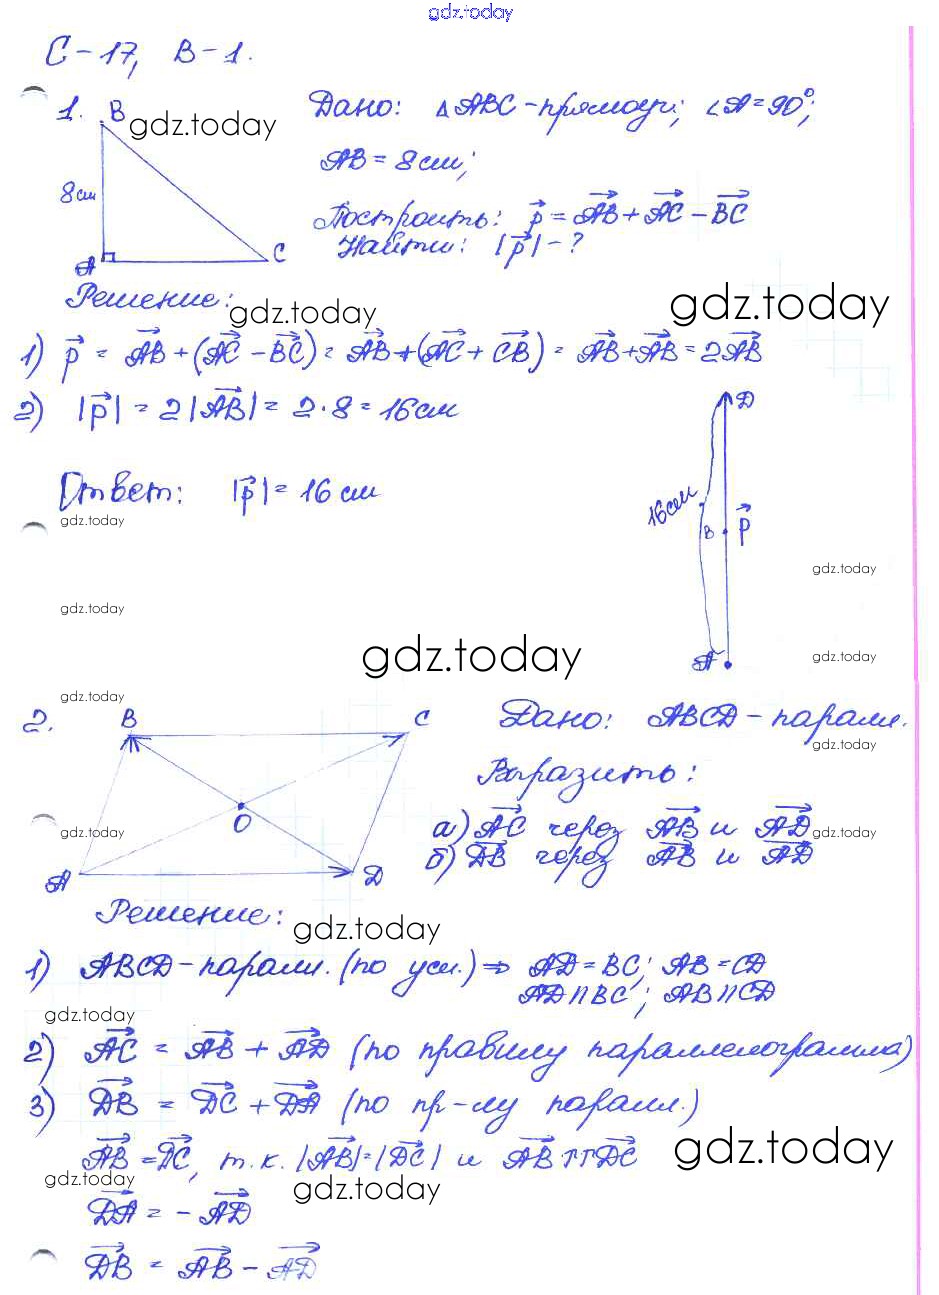 gdz.today
С-17, В-1.
1. B Дано: △ABC-прямоуг; ∠A=90°;
gdz.today
AB = 8см;
8см
Построить: p⃗ = AB⃗ + AC⃗ - BC⃗
A C Найти: |p⃗| - ?
Решение:
gdz.today gdz.today
1) p⃗ = AB⃗ + (AC⃗ - BC⃗) = AB⃗ + (AC⃗ + CB⃗) = AB⃗ + AB⃗ = 2AB⃗
2) |p⃗| = 2|AB⃗| = 2·8 = 16см
D
Ответ: |p⃗| = 16 см
16см
gdz.today
B p⃗
gdz.today
gdz.today
gdz.today
gdz.today
A
gdz.today
2. B C Дано: ABCD - паралл.
gdz.today
Выразить:
а) AC⃗ через AB⃗ и AD⃗
gdz.today gdz.today
O
б) DB⃗ через AB⃗ и AD⃗
A D
Решение:
gdz.today
1) ABCD - паралл. (по усл.) ⇒ AD = BC; AB = CD
AD II BC ; AB II CD
gdz.today
2) AC⃗ = AB⃗ + AD⃗ (по правилу параллелограмма)
3) DB⃗ = DC⃗ + DA⃗ (по пр-лу паралл.)
gdz.today
AB⃗ = DC⃗, т.к. |AB⃗| = |DC⃗| и AB⃗ ⇈ DC⃗
gdz.today gdz.today
DA⃗ = - AD⃗
DB⃗ = AB⃗ - AD⃗